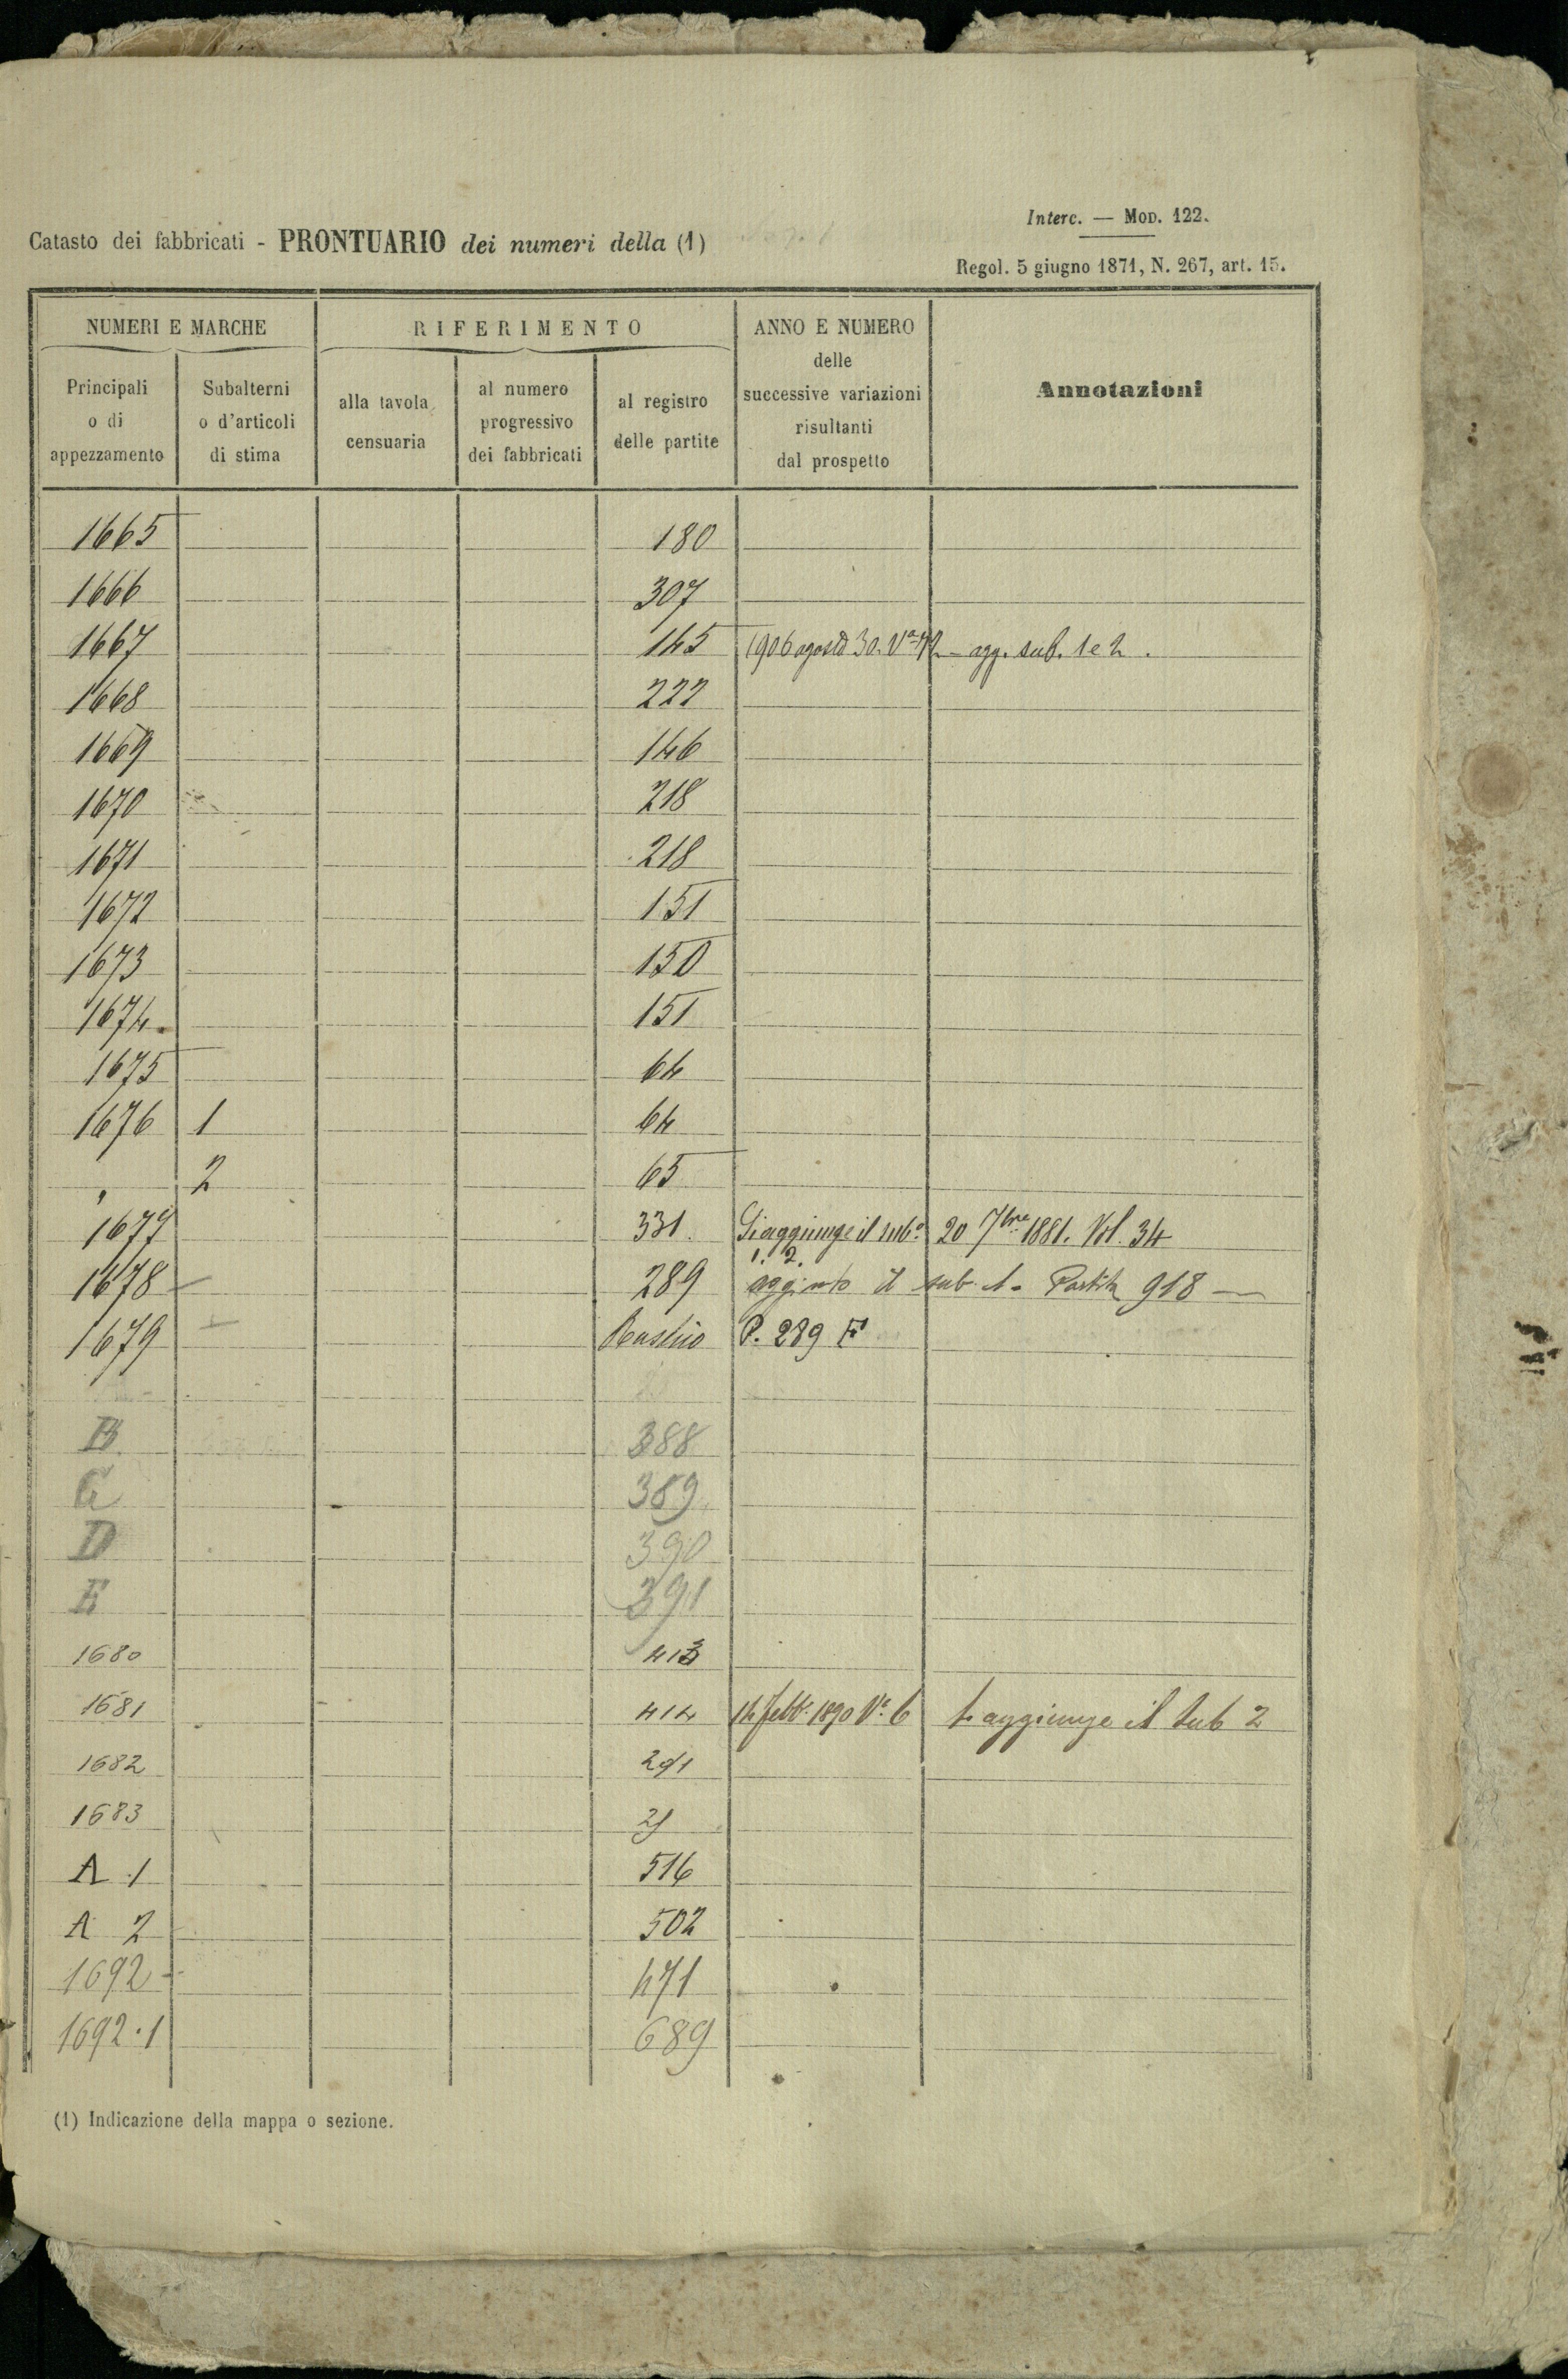 Interc. — Mod. 122.
Catasto dei fabbricati - PRONTUARIO dei numeri della (1)
Regol. 5 giugno 1871, N. 267, art. 15.
NUMERI E MARCHE
RIFERIMENTO
ANNO E NUMERO
delle
successive variazioni
risultanti
dal prospetto
Annotazioni
Principali
o di
appezzamento
Subalterni
o d'articoli
di stima
alla tavola
censuaria
al numero
progressivo
dei fabbricati
al registro
delle partite
1665 180
1666 307
1667 145 1906 agosto 30. Va agg. sub. 1 e 2.
1668 222
1669 146
1670 218
1671 218
1672 151
1673 150
1674. 151
1675 64
1676 1 64
" 2 65
1677 331. Si aggiunge il subo 20 7bre 1881. Vol. 34
1. 2.
1678 289 aggiunto il sub. 1. Partita 918 —
1679 P. 289 F
B 388
C 389
D 390
E 391
1680 413
1681 414 14 febb. 1890 Va. 6 Si aggiunge il Sub 2
1682
1683
A 1 516
A 2 502
1692 471
1692.1 689
(1) Indicazione della mappa o sezione.